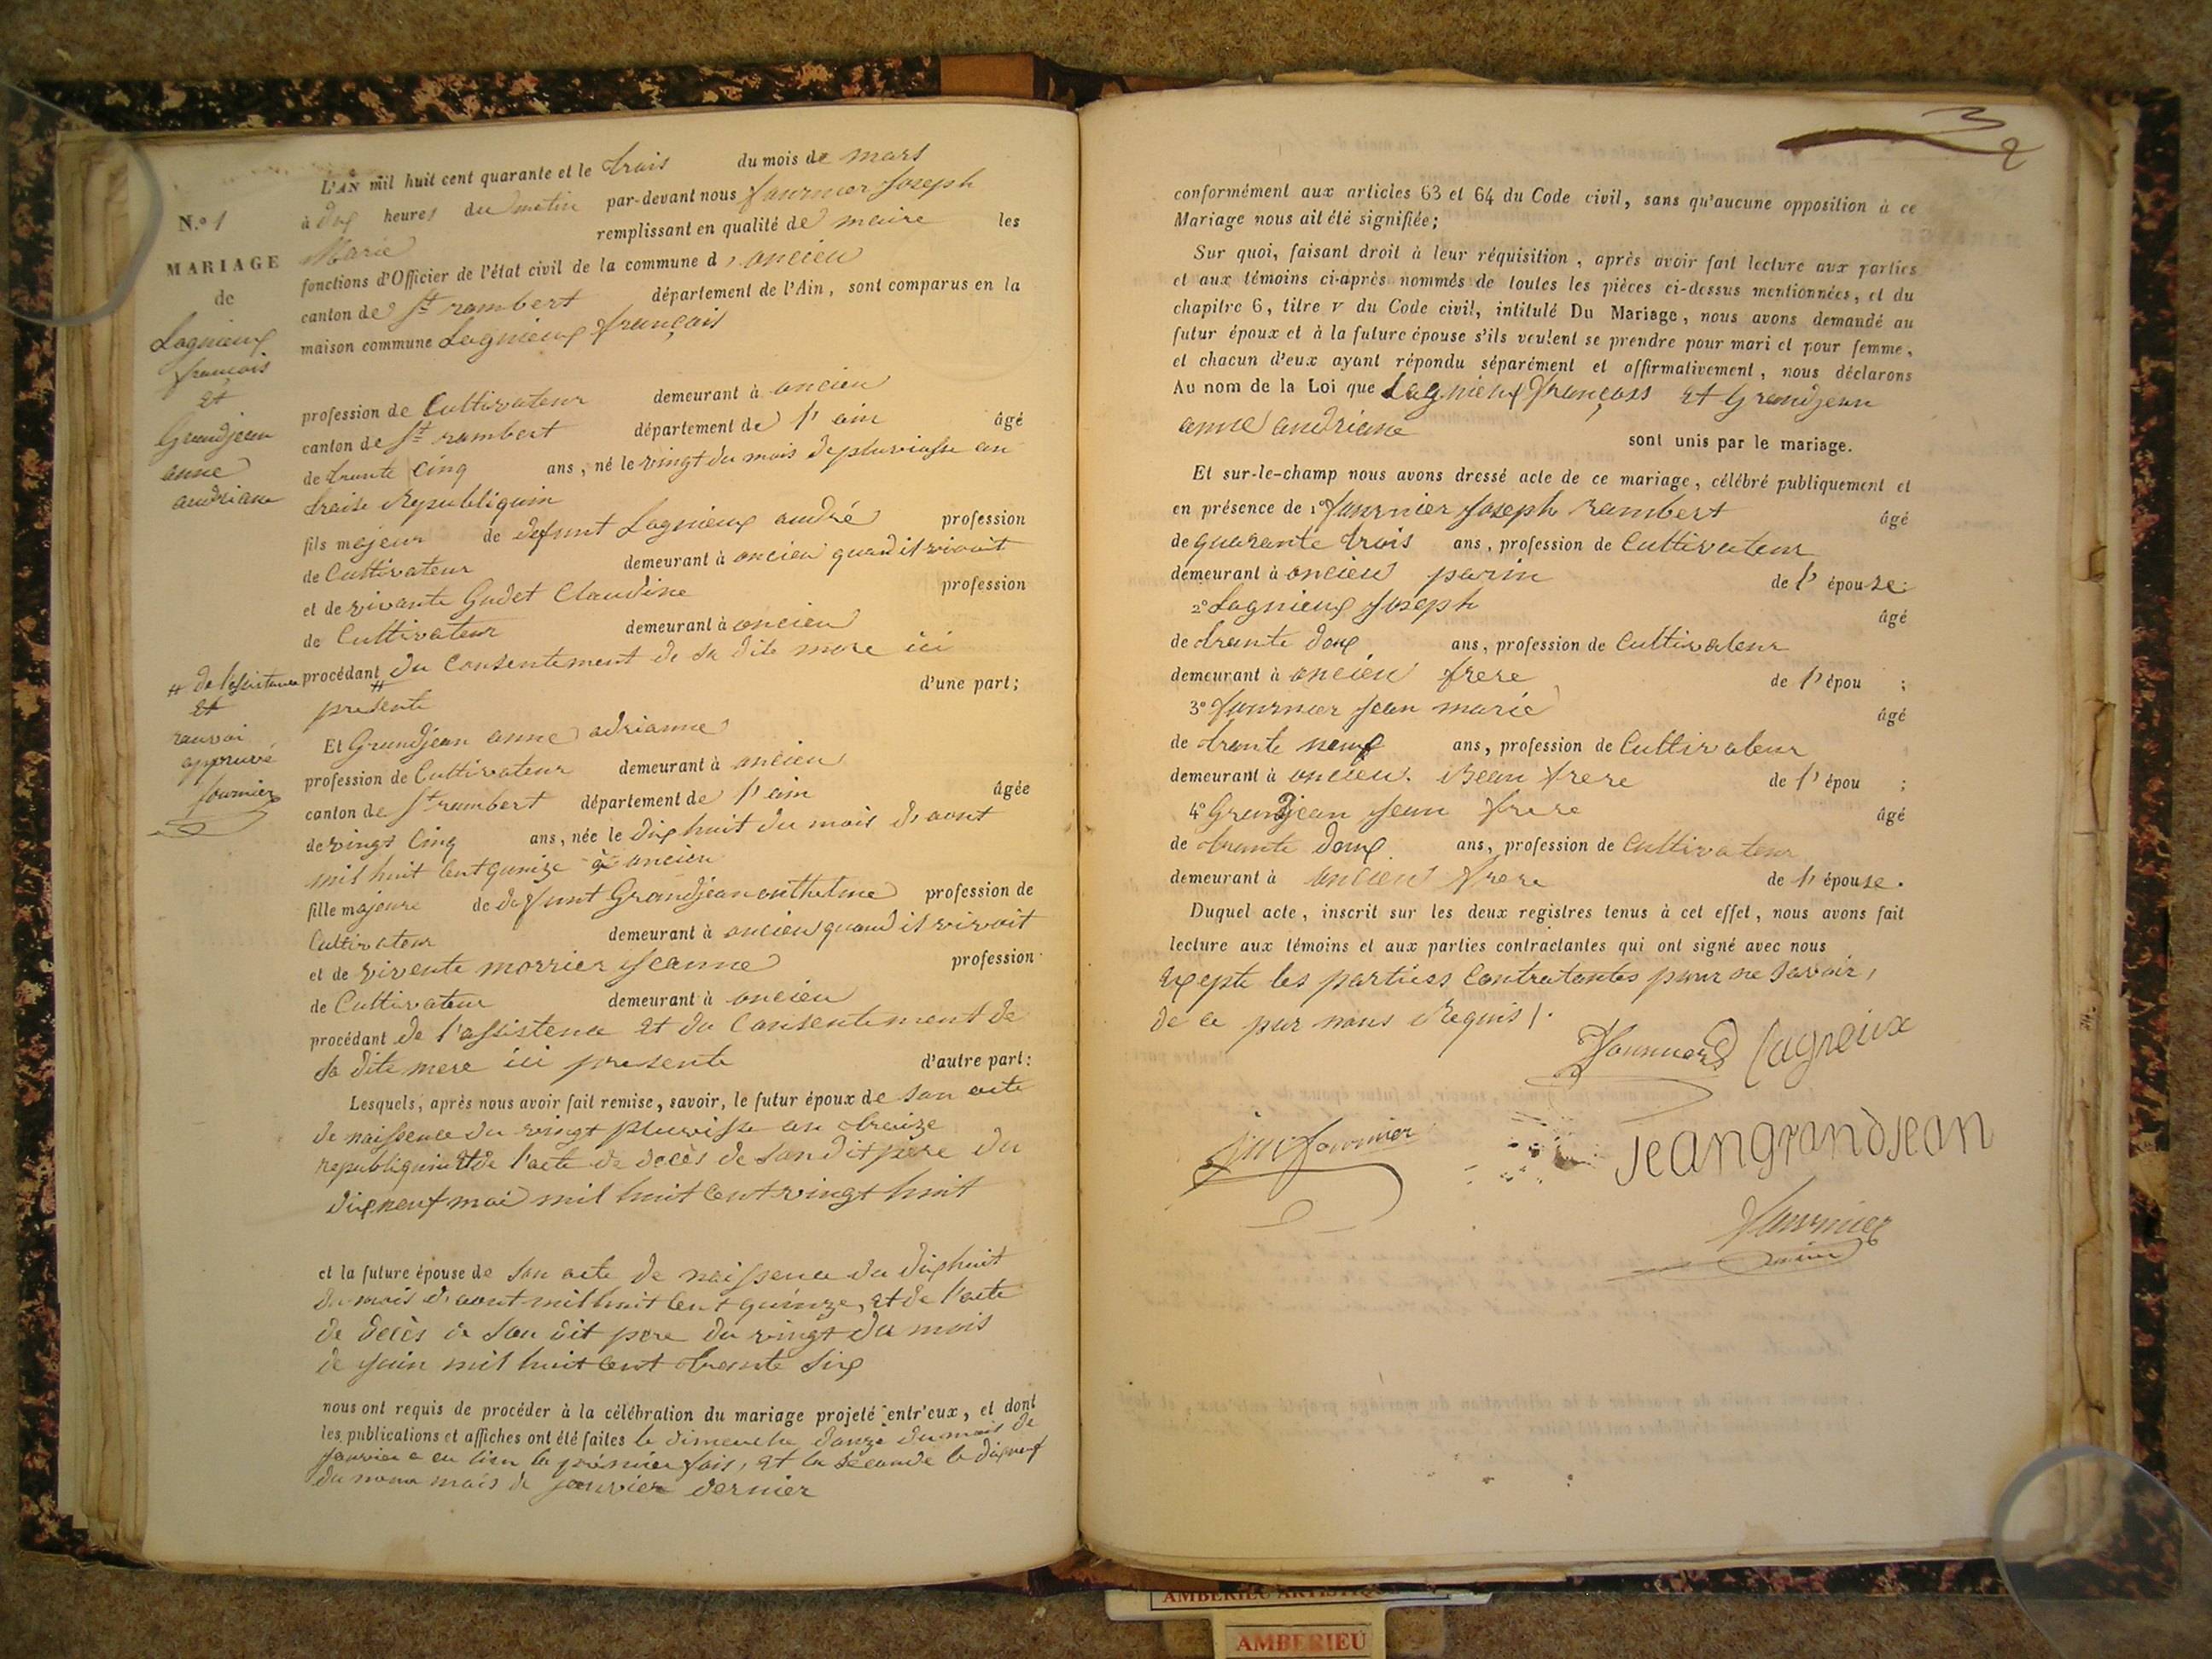 N.o 1
MARIAGE
de
Lagnieux
françois
et
Grandjean
anne
andriane
L'AN mil huit cent quarante et le trois du mois de mars
à dix heures du matin par-devant nous fournier Joseph
Marie remplissant en qualité de maire les
fonctions d'Officier de l'état civil de la commune d'oncieu
canton de St rambert département de l'Ain, sont comparus en la
maison commune Lagnieux françois
profession de Cultivateur demeurant à oncieu
canton de St rambert département de l'ain âgé
de trante Cinq ans, né le vingt du mois de pluviosse an
traise Republiquin
fils majeur de defunt Lagnieux andré profession
de Cultivateur demeurant à oncieu quand il vivoit
et de vivante Gudet Claudine profession
de Cultivateur demeurant à oncieu
procédant du Consentement de sa dite mere ici
presente d'une part;
# de l'assistance
et
ranvoi
appruvé
fournier
Et Grandjean anne adrianne
profession de Cultivateur demeurant à oncieu
canton de St rambert département de l'ain âgée
de vingt Cinq ans, née le dix huit du mois d'aout
mil huit Cent quinze à oncieu
fille majeure de defunt Grandjean anthelme profession de
Cultivateur demeurant à oncieu quand il vivoit
et de vivente morrier Jeanne profession
de Cultivateur demeurant à oncieu
procédant de l'assistence et du Consentement de
sa dite mere ici presente d'autre part:
Lesquels, après nous avoir fait remise, savoir, le futur époux de son acte
de naissence du vingt pluvisse an treize
republiquin et de l'acte de decès de son dit pere du
dix neuf mai mil huit Cent vingt huit
et la future épouse de son acte de naissence du dix huit
du mois d'aout mil huit Cent quinze, et de l'acte
de decès de son dit pere du vingt du mois
de juin mil huit Cent trante six
nous ont requis de procéder à la célébration du mariage projeté entr'eux, et dont
les publications et affiches ont été faites le dimenche douze du mois de
Janvier a eu lieu la première fois, et la seconde le dix neuf
du meme mois de janvier dernier
conformément aux articles 63 et 64 du Code civil, sans qu'aucune opposition à ce
Mariage nous ait été signifiée;
Sur quoi, faisant droit à leur réquisition, après avoir fait lecture aux parties
et aux témoins ci-après nommés de toutes les pièces ci-dessus mentionnées, et du
chapitre 6, titre v du Code civil, intitulé Du Mariage, nous avons demandé au
futur époux et à la future épouse s'ils veulent se prendre pour mari et pour femme,
et chacun d'eux ayant répondu séparément et affirmativement, nous déclarons
Au nom de la Loi que Lagnieux françois et Grandjean
anne andriane sont unis par le mariage.
Et sur-le-champ nous avons dressé acte de ce mariage, célébré publiquement et
en présence de 1o fournier Joseph rambert âgé
de quarante trois ans, profession de Cultivateur
demeurant à oncieu parin de l'épouse;
2o Lagnieux Joseph âgé
de trante doux ans, profession de Cultivateur
demeurant à oncieu frere de l'épou ;
3o fournier Jean marie âgé
de trante neuf ans, profession de Cultivateur
demeurant à oncieu. Beau frere de l'épou ;
4o Grandjean Jean frere âgé
de trante doux ans, profession de Cultivateur
demeurant à oncieu frere de l'épouse.
Duquel acte, inscrit sur les deux registres tenus à cet effet, nous avons fait
lecture aux témoins et aux parties contractantes qui ont signé avec nous
exepte les partiess Contratantes pour ne savoir,
de ce par nous Requis /.
Lagnieux
jm fournier
jean grandjean
fournier
maire
AMBERIEU ARTISTIQ
AMBERIEU